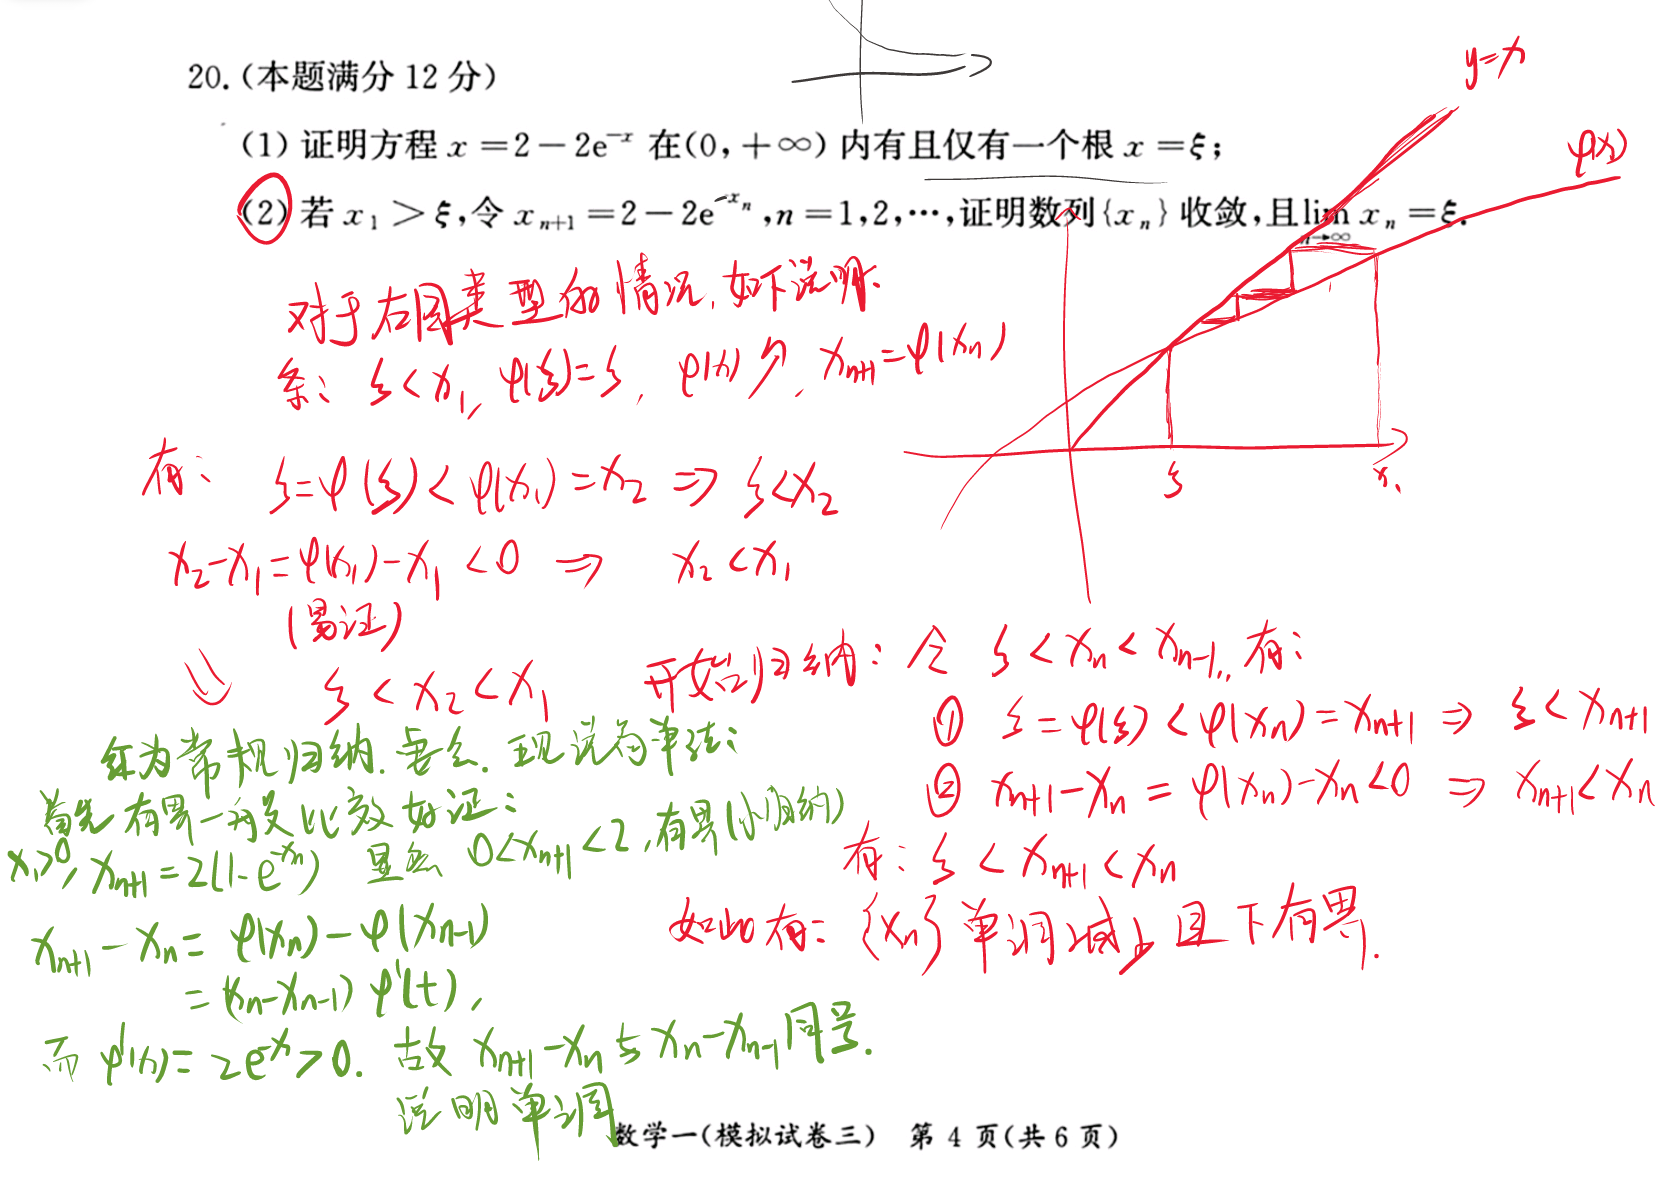 20.(本题满分 12 分)
(1) 证明方程 x = 2 − 2e^{−x} 在(0, +∞) 内有且仅有一个根 x = ξ;
(2) 若 x₁ > ξ, 令 x_{n+1} = 2 − 2e^{−x_n}, n = 1,2,…, 证明数列{x_n} 收敛, 且 lim_{n→∞} x_n = ξ.
y=x
φ(x)
ξ
x₁
对于右图类型的情况, 如下说明.
条: ξ<x₁, φ(ξ)=ξ, φ(x)↗, x_{n+1}=φ(x_n)
有: ξ=φ(ξ)<φ(x₁)=x₂ ⇒ ξ<x₂
x₂−x₁=φ(x₁)−x₁<0 ⇒ x₂<x₁
(易证)
⇓ ξ<x₂<x₁ 开始归纳: 令 ξ<x_n<x_{n−1}, 有:
① ξ=φ(ξ)<φ(x_n)=x_{n+1} ⇒ ξ<x_{n+1}
② x_{n+1}−x_n=φ(x_n)−x_n<0 ⇒ x_{n+1}<x_n
有: ξ<x_{n+1}<x_n
如此有: {x_n} 单调减少且下有界.
红为常规归纳. 现说简单法:
首先有界一般比较好证:
x₁>0, x_{n+1}=2(1−e^{−x_n}) 显然 0<x_{n+1}<2, 有界(小归纳)
x_{n+1}−x_n=φ(x_n)−φ(x_{n−1})
=(x_n−x_{n−1})φ'(t),
而 φ'(x)=2e^{−x}>0. 故 x_{n+1}−x_n 与 x_n−x_{n−1} 同号.
说明单调
数学一(模拟试卷三) 第 4 页(共 6 页)